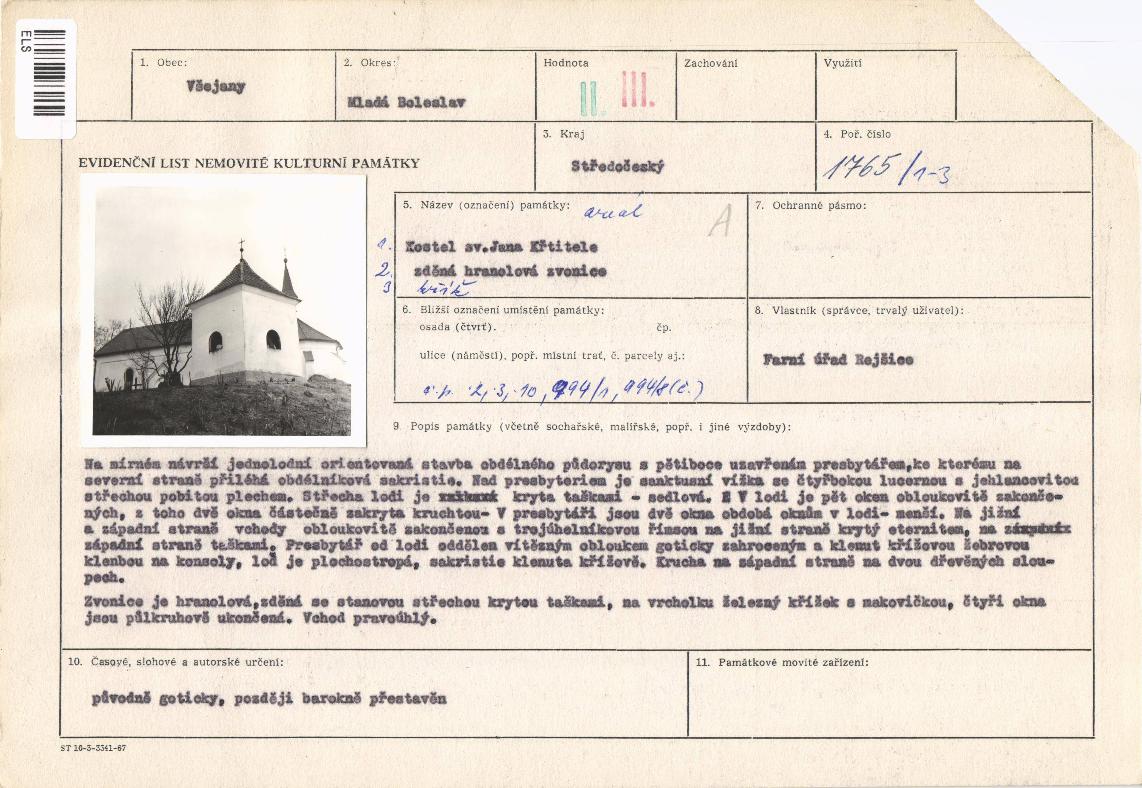 ELS
1. Obec:
Všejany
2. Okres:
Mladá Boleslav
Hodnota
II. III.
Zachování
Využití
EVIDENČNÍ LIST NEMOVITÉ KULTURNÍ PAMÁTKY
3. Kraj
Středočeský
4. Poř. číslo
1765/1-3
5. Název (označení) památky: areál
A
1. Kostel sv.Jana Křtitele
2. zděná hranolová zvonice
3
7. Ochranné pásmo:
6. Bližší označení umístění památky:
osada (čtvrť). čp.
ulice (náměstí), popř. místní trať, č. parcely aj.:
č.p. 2, 3, 10, 994/1, 994/8 (č.)
8. Vlastník (správce, trvalý uživatel):
Farní úřad Rejšice
9. Popis památky (včetně sochařské, malířské, popř. i jiné výzdoby):
Na mírném návrší jednolodní orientovaná stavba obdélného půdorysu s pětiboce uzavřeným presbytářem,ke kterému na
severní straně přiléhá obdélníková sakristie. Nad presbyteriem je sanktusní vížka se čtyřbokou lucernou s jehlancovitou
střechou pobitou plechem. Střecha lodi je kryta taškami - sedlová. V lodi je pět oken obloukovitě zakonče-
ných, z toho dvě okna částečně zakryta kruchtou- V presbytáři jsou dvě okna obdobá oknům v lodi- menší. Na jižní
a západní straně vchody obloukovitě zakončenou s trojúhelníkovou římsou na jižní straně krytý eternitem, na
západní straně taškami. Presbytář od lodi oddělen vítězným obloukem goticky zahroceným a klenut křížovou žebrovou
klenbou na konsoly, loď je plochostropá, sakristie klenuta křížově. Krucha na západní straně na dvou dřevěných slou-
pech.
Zvonice je hranolová,zděná se stanovou střechou krytou taškami, na vrcholku železný křížek s makovičkou, čtyři okna
jsou půlkruhově ukončená. Vchod pravoúhlý.
10. Časové, slohové a autorské určení:
původně goticky, později barokně přestavěn
11. Památkové movité zařízení:
ST 10-3-3341-67